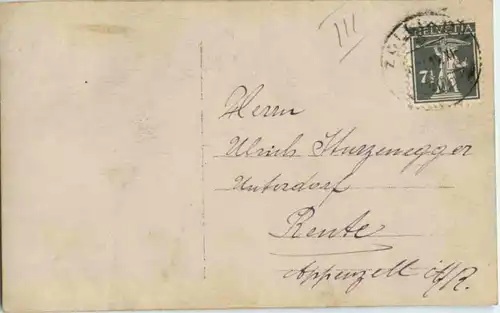 III
HELVETIA
7½
Herrn
Ulrich Sturzenegger
Unterdorf
Reute
Appenzell A/R.